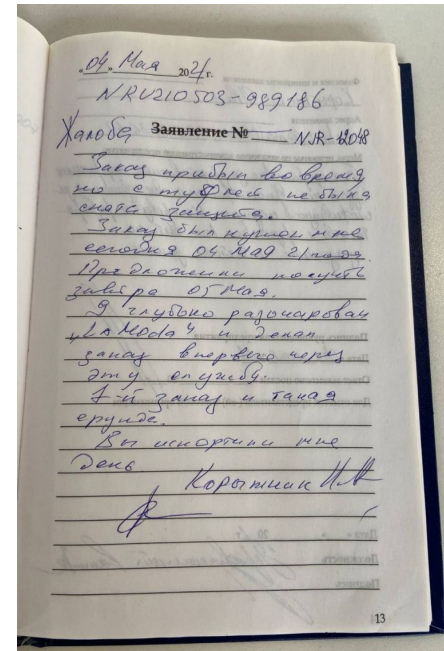 „04„ Мая 2021г.
NRU210503-989186
Жалоба Заявление № NJR-12048
Заказ прибыл вовремя
но с туфлей не была
снята защита.
Заказ был нужен мне
сегодня 04 Мая 21 года.
Предложили получить
завтра 05 Мая.
Я глубоко разочарован
„LaModa" и делал
заказ впервые через
эту службу.
1-й заказ и такая
ерунда.
Вы испортили мне
день
13